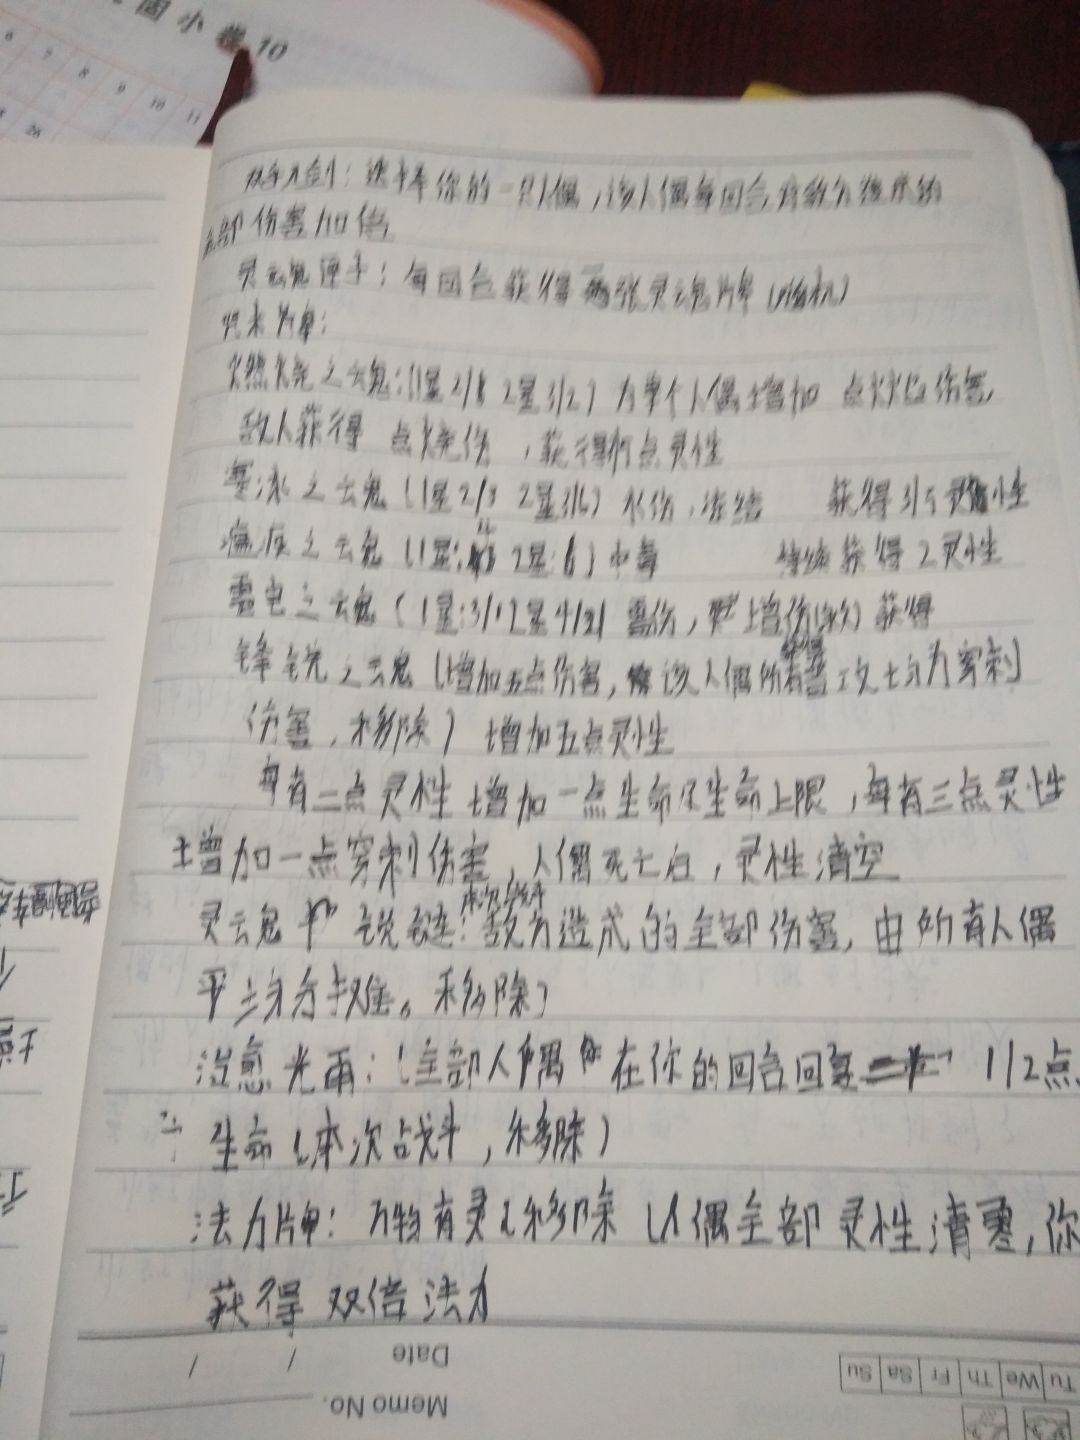 小卷10
6 7 8 9 10 11
26
双手万剑：选择你的一只人偶，该人偶每回合对敌方造成的
全部伤害加倍
灵魂匣子：每回合获得两张灵魂片牌（随机）
咒术片牌：
燃烧之魂：（1星2/8 2星3/2）为单个人偶增加 点火焰伤害，
敌人获得 点烧伤，获得 点灵性
寒冰之魂（1星2/3 2星3/6）冰伤，冻结 获得3/5灵性
瘟疫之魂（1星：4 2星：6）中毒 持续获得2灵性
雷电之魂（1星：3/1 2星4/2）雷伤， 增伤（1次）获得
锋锐之魂（增加五点伤害，该人偶所有普攻均为穿刺
伤害，移除）增加五点灵性
每有二点灵性增加一点生命及生命上限，每有三点灵性
增加一点穿刺伤害，人偶死亡后，灵性清空
本次战斗
灵魂 锁链：敌方造成的全部伤害，由所有人偶
平均分摊。移除）
治愈光雨：（全部人偶 在你的回合回复 1/2点
生命（本次战斗，移除）
法力片牌：万物有灵（移除 人偶全部灵性清零，你
获得双倍法力
Date / /
Memo No.
Tu We Th Fr Sa Su